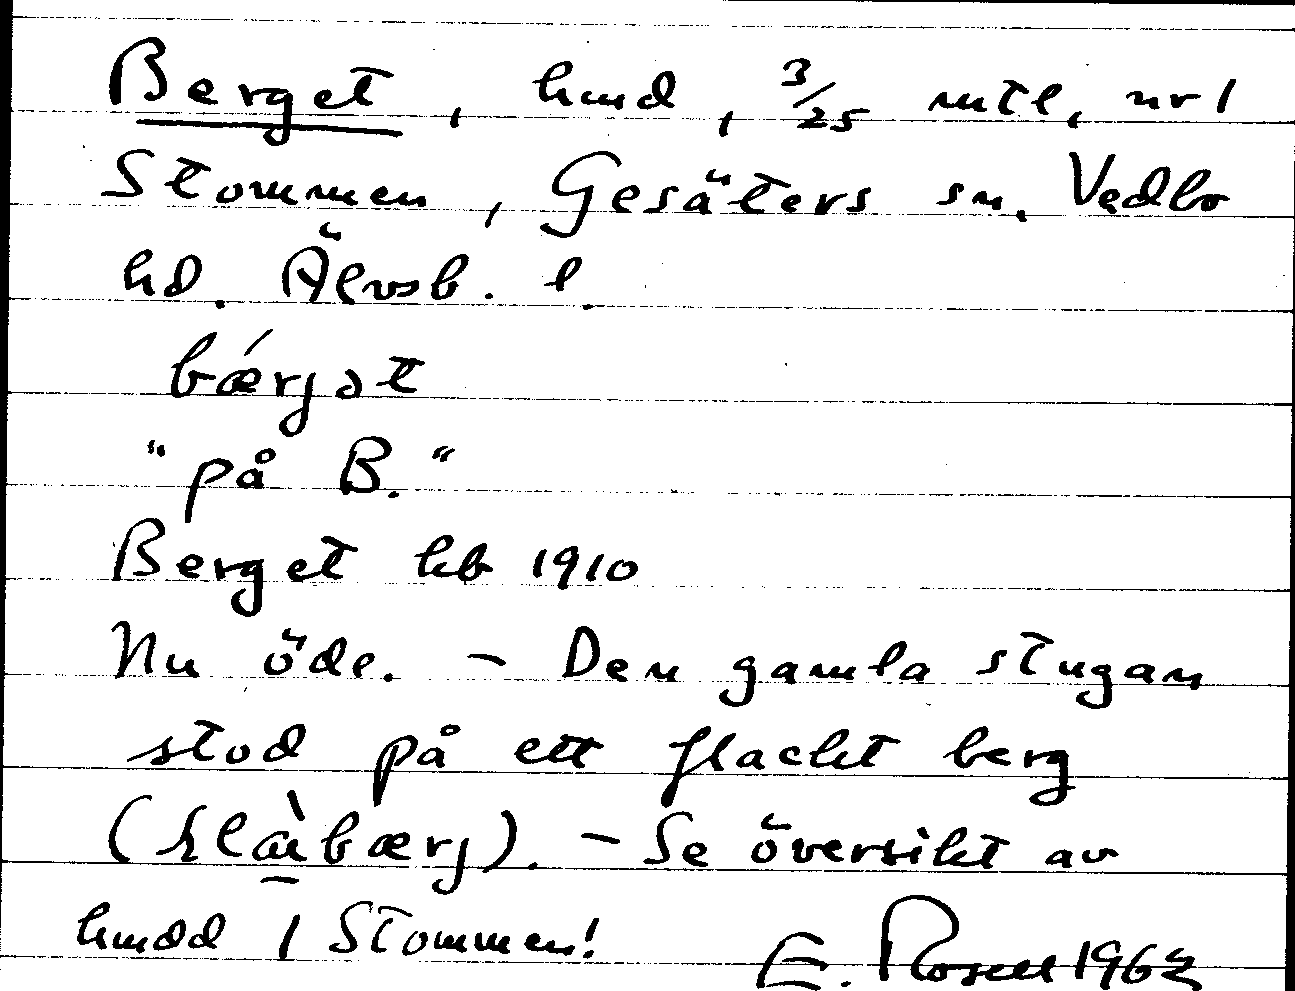 Berget, hmd, 3/25 mtl, nr 1
Stommen, Gesäters sn. Vedbo
hd. Älvsb. l.
bǽrjət
"på B."
Berget kb 1910
Nu öde. – Den gamla stugan
stod på ett flackt berg
( bærj). – Se översikt av
hmdd 1 Stommen!
E. Rosell 1962